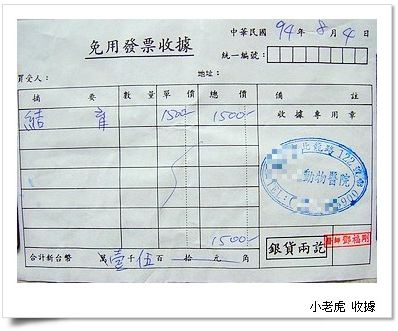 免用發票收據
中華民國 94年 8月 4日
統一編號：
買受人：
地址：
摘要 數量 單價 總價 備註
結育 1500- 1500- 收據專用章
北龍路122號
動物醫院
1500-
銀貨兩訖
醫師 鄧福剛
合計新台幣 萬壹千伍百拾元角
小老虎 收據